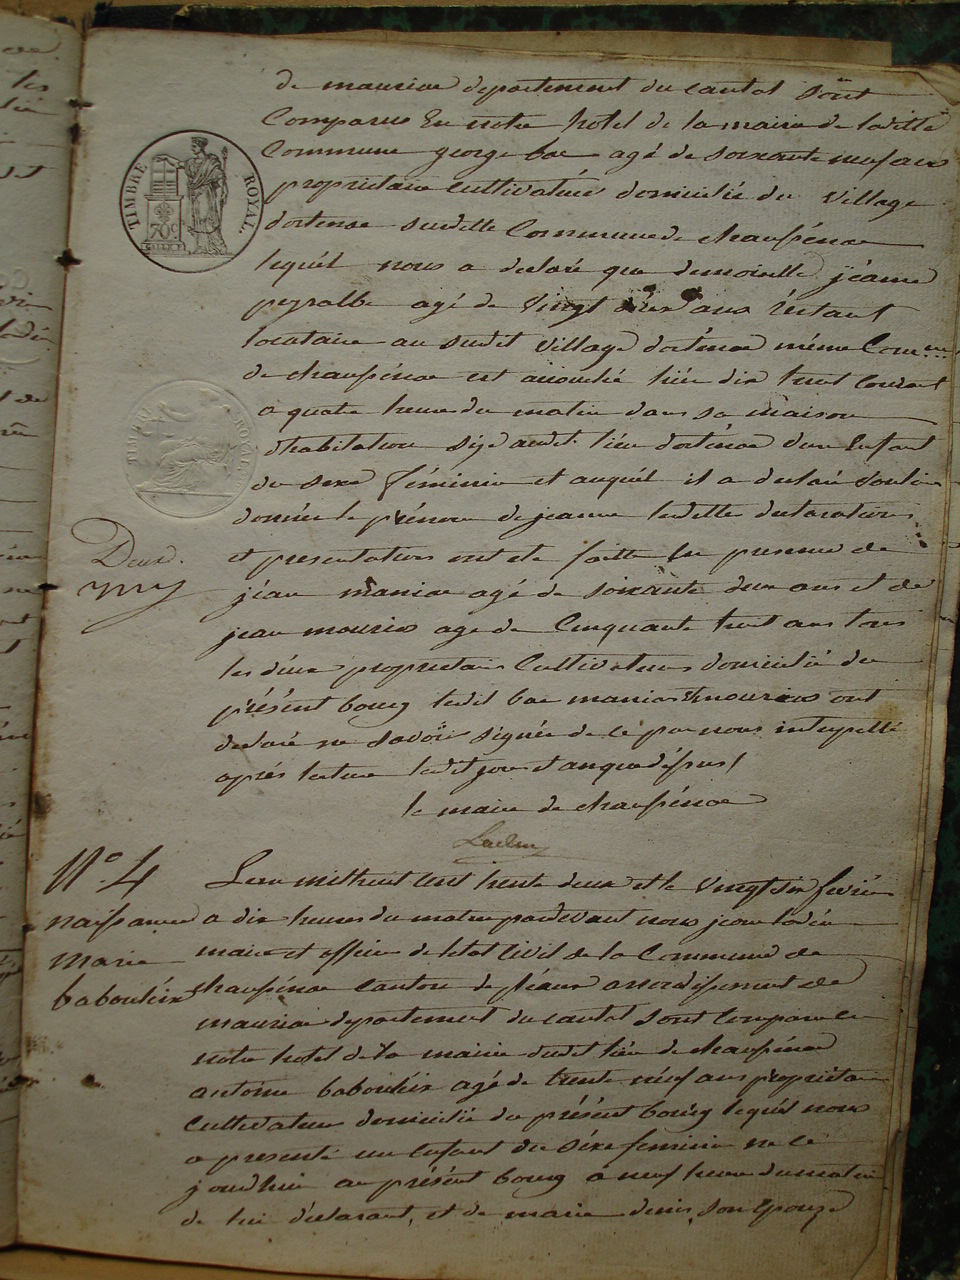 de mauriac departement du cantal sont
Comparus En notre hotel de la mairie de laditte
Commune george bac agé de soixante neuf ans
propriétaire cultivateur domicilié du village
dostenac susditte Commune de chaussénac
lequél nous a declaré que demoiselle jéanne
peyralbe agé de Vingt deux ans réstant
locataire au susdit village dosténac méme Com
de chaussénac est accouché hiér dix huit Courant
a quatre heure du matin dans sa maison
dhabitation size audit lieu dosténac dun Enfant
du sexe féminin et auquél il a declaré vouloir
donnér le prénom de jeanne laditte declaration
et presentation ont eté faitte En presence de
jéan maniac agé de soixante deux ans et de
jean mourix agé de Cinquante huit ans tous
les déux proprietaire Cultivateurs domicilié du
présént bourg ledit bac maniac et mourix ont
declaré ne savoir signér de ce par nous interpellé
aprés lecture ledit jour et an que déssus /
le maire de chaussénac
TIMBRE ROYAL
70c
TIMBRE ROYAL
Deux
No. 4
naissance
Marie
babouléix
Lan mil huit cent trente deux et le vingt six fevriér
a dix heures du matin pardevant nous jean
maire et officiér de létat Civil de la Commune de
chaussénac canton de pléaux arrondissement de
mauriac departement du cantal sont Comparu En
notre hotel de la mairie dudit liéu de chaussénac
antoine baboulèix agé de trente néuf ans propriétaire
Cultivateur domicilié du présént bourg lequél nous
a presenté un Enfant du séxe feminin né ce
jourdhui au présént bourg a neuf heure du matin
de lui déclarant, et de marie denis son Epouze